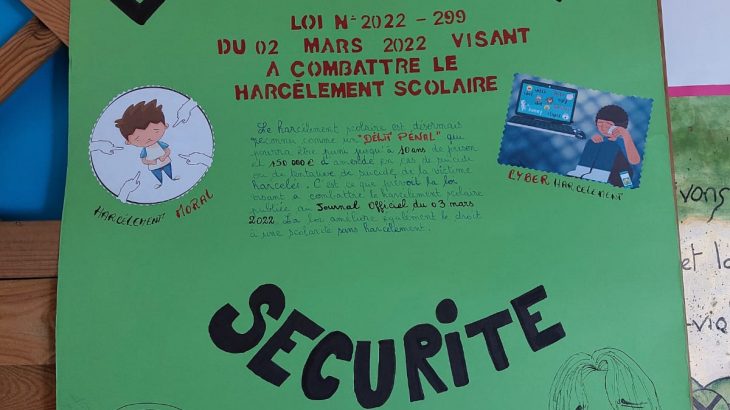 LOI N°2022 - 299
DU 02 MARS 2022 VISANT
A COMBATTRE LE
HARCÈLEMENT SCOLAIRE
Le harcèlement scolaire est désormais
reconnu comme un "DÉLIT PÉNAL" qui
pourra être puni jusqu'à 10 ans de prison
et 150 000 € d'amende en cas de suicide
ou de tentative de suicide de la victime
harcelée. C'est ce que prévoit la loi
visant à combattre le harcèlement scolaire
publiée au Journal Officiel du 03 mars
2022. La loi améliore également le droit
à une scolarité sans harcèlement.
HARCÈLEMENT MORAL
CYBER HARCELEMENT
SECURITE
vons
et la